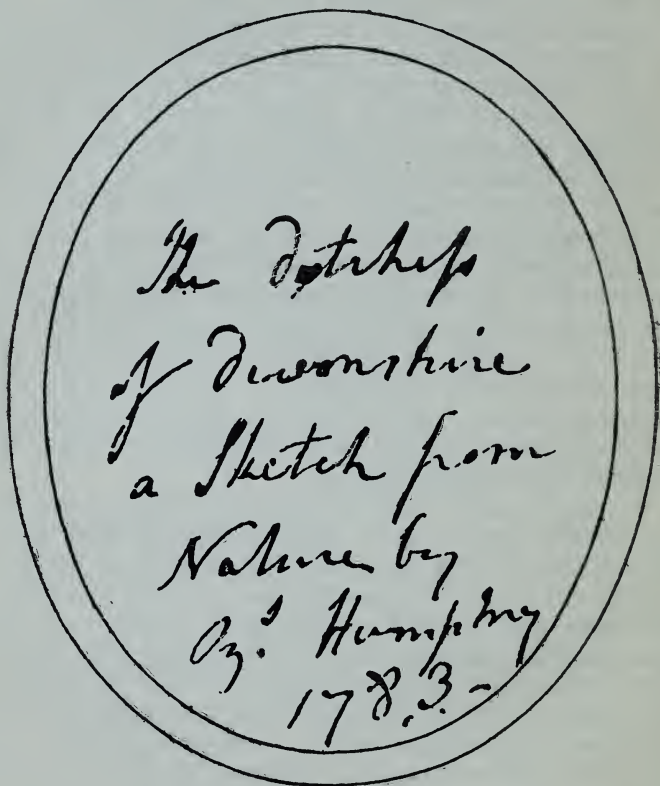 The Dutchess
of Devonshire
a Sketch from
Nature by
Ozs Humphry
1783.-